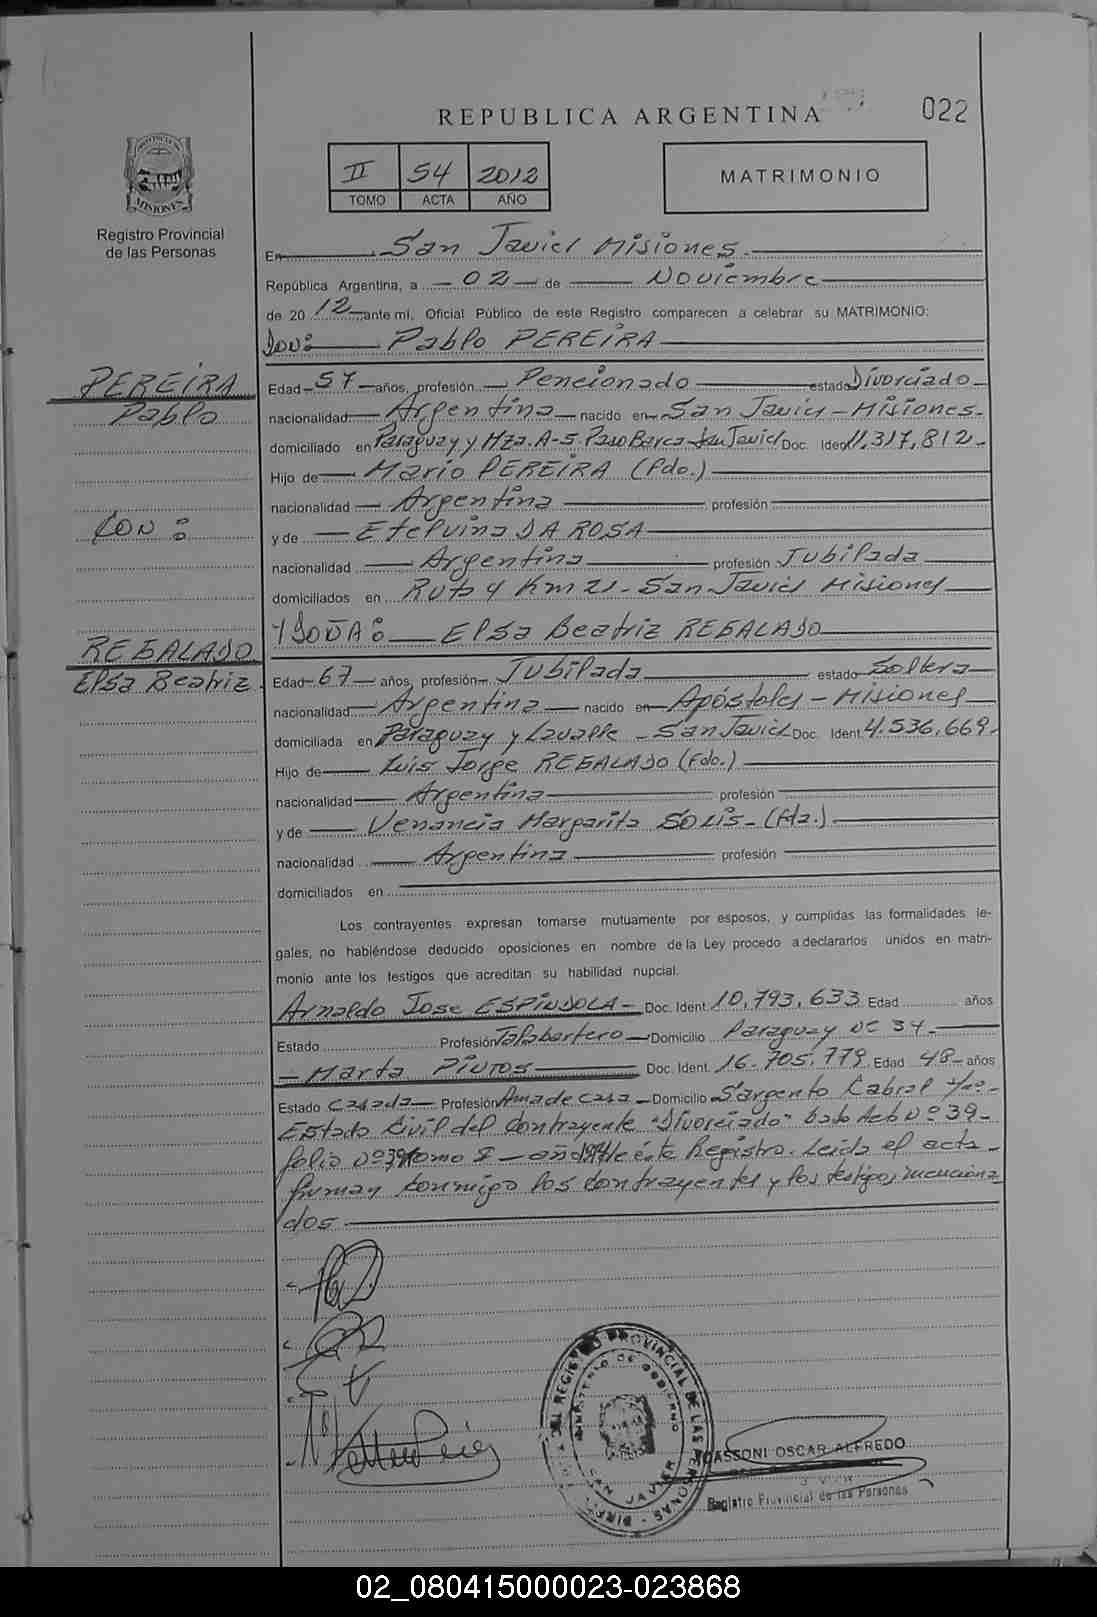 REPUBLICA ARGENTINA
022
PROVINCIA DE
MISIONES
Registro Provincial
de las Personas
II 54 2012
TOMO ACTA AÑO
MATRIMONIO
En San Javier Misiones.
República Argentina, a 02 de Noviembre
de 2012 ante mí, Oficial Público de este Registro comparecen a celebrar su MATRIMONIO:
DON: Pablo PEREIRA
PEREIRA
Pablo
Edad 57 años, profesión Pencionado estado Divorciado
nacionalidad Argentina nacido en San Javier - Misiones.
domiciliado en Paraguay y Mza. A-5. Paso Barca - San Javier Doc. Ident. 11.317.812-
Hijo de Mario PEREIRA (fdo.)
nacionalidad Argentina profesión
CON:
y de Etelvina DA ROSA
nacionalidad Argentina profesión Jubilada
domiciliados en Ruta 4 Km 21 - San Javier Misiones
Y DOÑA: Elsa Beatriz REGALADO
REGALADO
Elsa Beatriz.
Edad 67 años, profesión Jubilada estado Soltera
nacionalidad Argentina nacido en Apóstoles - Misiones
domiciliada en Paraguay y Lavalle - San Javier Doc. Ident. 4.536.669-
Hijo de Luis Jorge REGALADO (fdo.)
nacionalidad Argentina profesión
y de Venancia Margarita SOLIS - (fda.)
nacionalidad Argentina profesión
domiciliados en
Los contrayentes expresan tomarse mutuamente por esposos, y cumplidas las formalidades le-
gales, no habiéndose deducido oposiciones en nombre de la Ley procedo a declararlos unidos en matri-
monio ante los testigos que acreditan su habilidad nupcial.
Arnaldo Jose ESPINDOLA - Doc. Ident. 10.793.633 Edad años
Estado Profesión Talabartero Domicilio Paraguay Nº 34-
Marta PINTOS Doc. Ident. 16.705.779 Edad 48 años
Estado Casada Profesión Ama de casa - Domicilio Sargento Cabral
Estado Civil del Contrayente "Divorciado" bajo Acta Nº 39-
folio Nº 39 tomo I - año de éste Registro. Leida el acta
firman conmigo los contrayentes y los testigos menciona
dos.
REGISTRO PROVINCIAL DE LAS PERSONAS
MINISTERIO DE GOBIERNO
SAN JAVIER
CASSONI OSCAR ALFREDO
Registro Provincial de las Personas
02_080415000023-023868